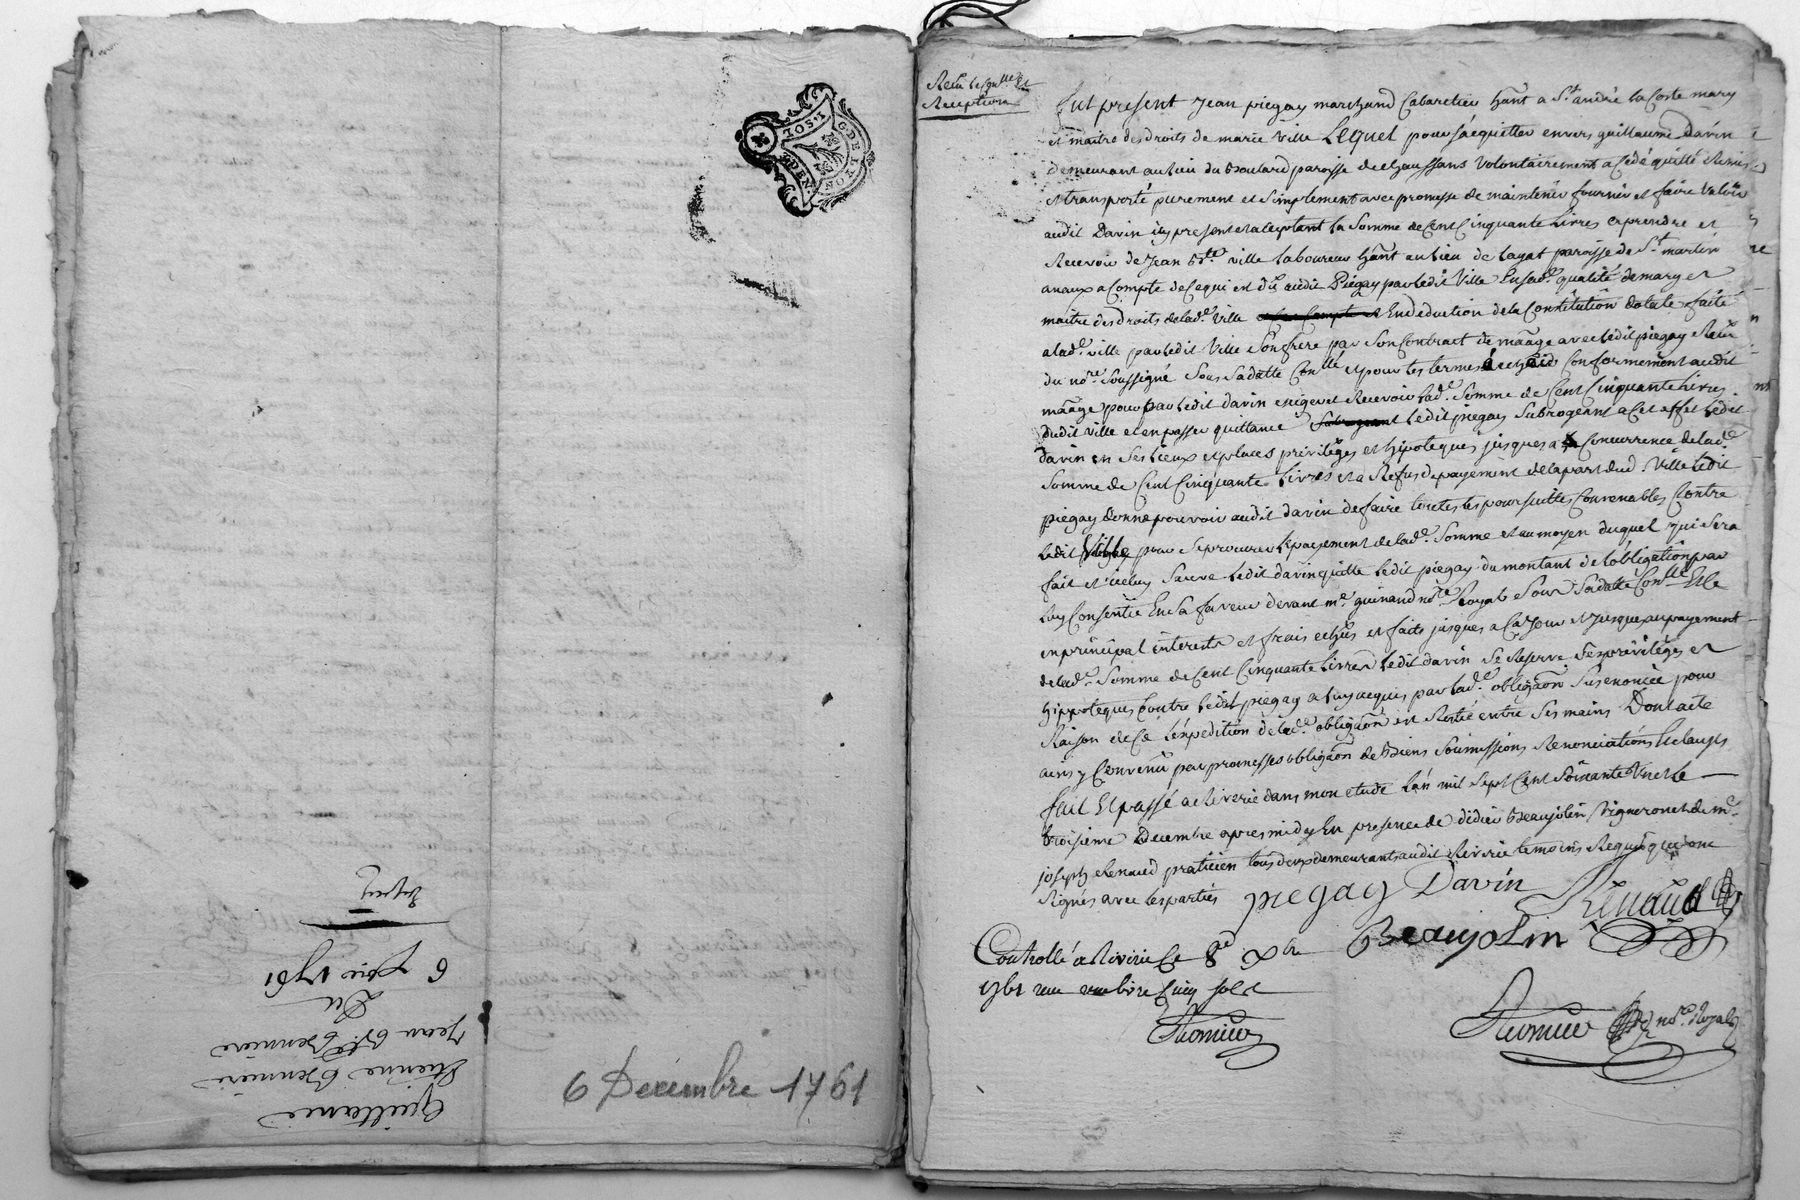 G.DE LYON
I.SOL
DEN.
Quittance
Etienne Bennier
Jean Bte Bennier
Du
6 Xbre 1761
6 Decembre 1761
Reception
fut present Jean piegay marchand Cabaretier hant a St andré la Coste mary
et maitre des droits de marie Ville Lequel pour s'acquitter envers guillaume Davin
demeurant au lieu du Boulard paroisse de Chaussans volontairement a Cedé quitté Remis
et transporté purement et simplement avec promesse de maintenir fournir et faire valoir
audit Davin icy present et aceptant la somme de Cent Cinquante Livres a prendre et
Recevoir de Jean Bte ville laboureur hant au lieu de Layat paroisse de St martin
anaux a Compte de Ce qui est dû audit Piegay par ledit Ville En sad. qualité de mary et
maitre des droits de lad. Ville Endeduction de la Constitution dotale faite
a lad. ville par ledit Ville son frere par son Contract de maage avec ledit piegay Reçu
du nore soussigné sous sa datte Conllé et pour les termes échus Conformement audit
maage pour par ledit davin exiger et Recevoir lad. somme de Cent Cinquante livres
dudit ville et en passer quittance ledit piegay subrogeant a Cet effet ledit
davin en ses lieux et places privilèges et hipoteques jusques a Concurrence de lad.
somme de Cent Cinquante Livres et a Refus de payement de la part dud. Ville ledit
piegay donne pouvoir audit davin de faire toutes les poursuittes Convenables Contre
ledit Ville pour se procurer le payement de lad. somme et au moyen duquel qui sera
fait et iceluy sauve ledit davin quitte ledit piegay du montant de l'obligation par
luy Consentie En sa faveur devant me guinand nore Royal sous sa datte Conllée
en principal interests et frais echûs et faits jusques a Ce Jour et jusques au payement
de lad. somme de Cent Cinquante Livres ledit davin se Reserve ses privilèges et
hippoteques Contre ledit piegay a luy acquis par lad. obligaon susenoncée pour
Raison de Ce l'expedition de lad. obligaon est Restée entre ses mains Dont acte
ainsy Convenû par promesses obligaon de Biens soumissions Renonciations Et clauses
fait Et passé a Riverie dans mon etude l'an mil sept Cent soixante Un et le
troisieme Decembre apres midy En presence de didier Beaujolin Vigneron et de me
joseph Renaud praticien tous deux demeurants audit Riverie temoins Requis qui ont
signés avec les parties piegay Davin Renaud
Beaujolin
Controllé a Riverie le 8e Xbre
1761 Reçu livre Cinq sols
nore Royal